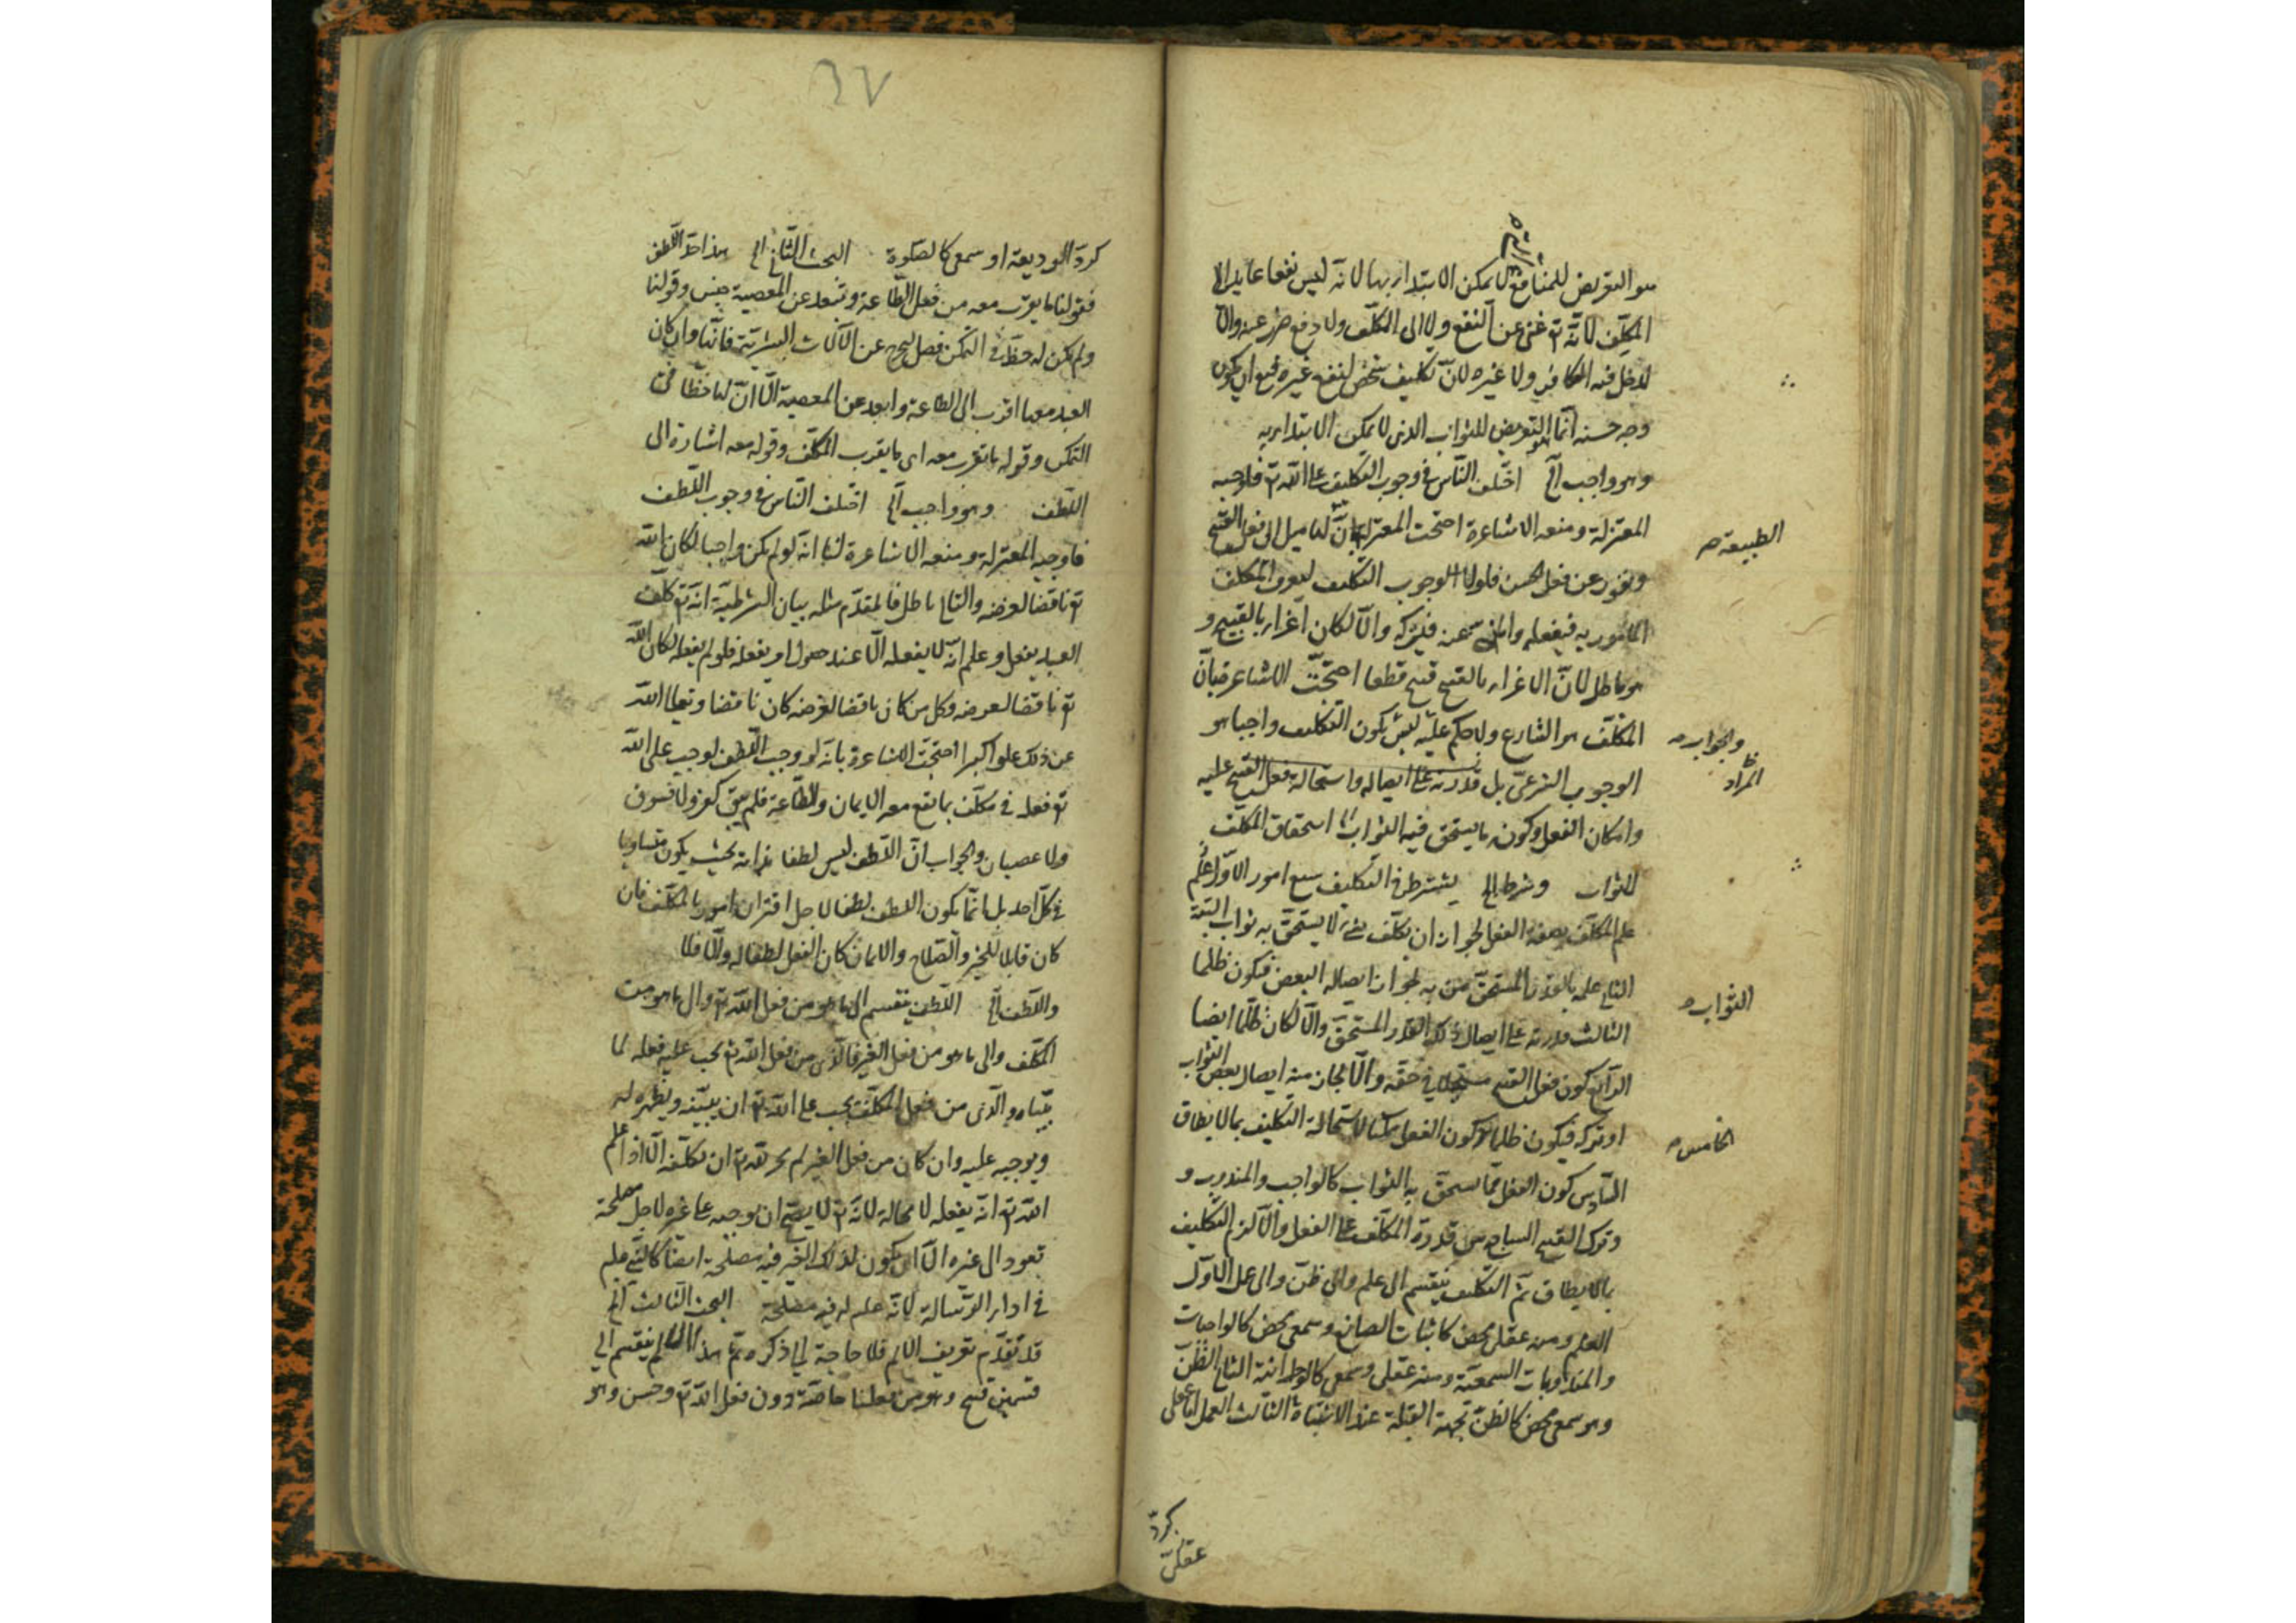 هو التعريض للمنافع لا يمكن الابتداء بها لانه ليس نفعا عايد الى
المكلِّف لانّه تع غنى عن النفع ولا الى المكلَّف ولا دفع ضرر عنه والا
لدخل فيه الكافر ولا غيره لانّ تكليف شخص لنفع غيره قبيح ان يكون
وجه حسنه انما هو التعريض للثواب الذى لا يمكن الابتداء به
وهو واجب آلخ اختلف النّاس فى وجوب التكليف على اللّه تع فاوجبه
المعتزلة ومنعه الاشاعرة احتجت المعتزلة بانّ لنا ميل الى فعل القبيح
الطبيعة صح
ونفور عن فعل الحسن فلولا الوجوب التكليف المكلف
المأمور به فيفعله والمنهى عنه فيتركه والّا لكان اغراء بالقبيح و
هو باطل لانّ الاغراء بالقبيح قبيح قطعا احتجّت الاشاعرة بانّ
المكلّف هو الشارع ولا حكم عليه يكون التكليف واجبا هو
والجواب
المراد
الوجوب الشرعىّ بل قدرته على ايصاله واستحالة فعل القبيح عليه
وامكان الفعل وكونه ما يستحق فيه الثواب استحقاق المكلّف
للثواب وشرط الخ يشترط فى التكليف سبع امور الاوّل علم
علم المكلّف بصفة الفعل لجواز ان يكلّف بشىء لا يستحقّ به ثواب البتّة
الثانى علمه بالقدر المستحقّ من به لجواز ايصاله البعض فيكون ظلما
الثواب صح
الثالث قدرته على ايصال ذلك القدر المستحقّ والّا لكان ظلما ايضا
الرابع كون فعل القبيح فى حقّه والّا لجاز منه ايصال بعض الثواب
او تركه فيكون ظلما كون الفعل ممكنا لاستحالة التكليف بما لا يطاق
الخامس صح
السّادس كون الفعل ممّا يستحقّ به الثواب كالواجب والمندوب و
وترك القبيح السابع من قدرة المكلّف على الفعل والّا لزم التكليف
بما لا يطاق ثمّ التكليف ينقسم الى علم والى ظنّ والى عمل الاوّل
العلم ومنه عقلى محض كاثبات الصانع وسمعى محض كالواجبات
والمندوبات السمعيّة ومنه عقلى وسمعى كالوحدانية الثانى الظنّ
وهو سمعى محض كالظنّ بجهة القبلة عند الاشتباه الثالث العمل امّا عقلى
كردّ
عقلىّ
٢٧
كردّ الوديعة او سمعى كالصّلوة البحث الثّانى الخ هذا حدّ اللّطف
فقولنا ما يقرب معه من فعل الطّاعة وتبعد عن المعصية جنس وقولنا
ولم يكن له حظّ فى التمكن فصل يخرج عن الآلات فانّها وان كان
العبد معها اقرب الى الطاعة وابعد عن المعصية الّا انّ لها حظّا فى
التمكن وقوله ما يقرب معه اى ما يقرب المكلّف وقوله معه اشارة الى
اللّطف وهو واجب آلخ اختلف النّاس فى وجوب اللّطف
فاوجبه المعتزلة ومنعه الاشاعرة لنا انّه لو لم يكن واجبا لكان اللّه
تع ناقضا لغرضه والتالى باطل فالمقدّم مثله بيان الشرطيّة انّه تع كلّف
العبد بفعل وعلم انّه لا يفعله الّا عند حصول امر يفعله فلو لم يفعله لكان اللّه
تع ناقضا لغرضه وكل من كان ناقضا لغرضه كان ناقصا وتعالى اللّه
عن ذلك علوا كبيرا احتجّت الاشاعرة بانّه لو وجب اللّطف لوجب على اللّه
تع فعله فى مكلّف بما يقع معه الايمان والطّاعة فلم يبق كفر ولا فسوق
ولا عصيان والجواب انّ اللّطف ليس لطفا بذاته بحيث يكون متساويا
فى كلّ احد بل انّما يكون اللطف لطفا لاجل اقتران امور بالمكلّف فان
كان قابلا للخير والصّلاح والايمان كان الفعل لطفا له والّا فلا
واللّطف آلخ اللّطف ينقسم الى ما هو من فعل اللّه تع والى ما هو من
المكلّف والى ما هو من فعل الغير فالذى من فعل اللّه تع يجب عليه فعله لما
بيّناه والّذى من فعل المكلّف يجب على اللّه تع ان يعيّنه ويظهره له
ويوجبه عليه وان كان من فعل الغير لم يجز للّه تع ان يكلّفه الّا اذا علم
اللّه تع انّه يفعله لا محالة لانّه تع لا يصحّ ان يوجبه على غيره لاجل مصلحة
تعود الى غيره الّا ان يكون لذلك الغير فيه مصلحة ايضا كالنّبى علم
فى اداء الرّسالة لانّه علم له فيه مصلحة البحث الثالث آلخ
قد تقدّم تعريف الالم فلا حاجة الى ذكره ثمّ هذا الالم ينقسم الى
قسمين قبيح وهو من فعلنا خاصّة دون فعل اللّه تع وحسن وهو